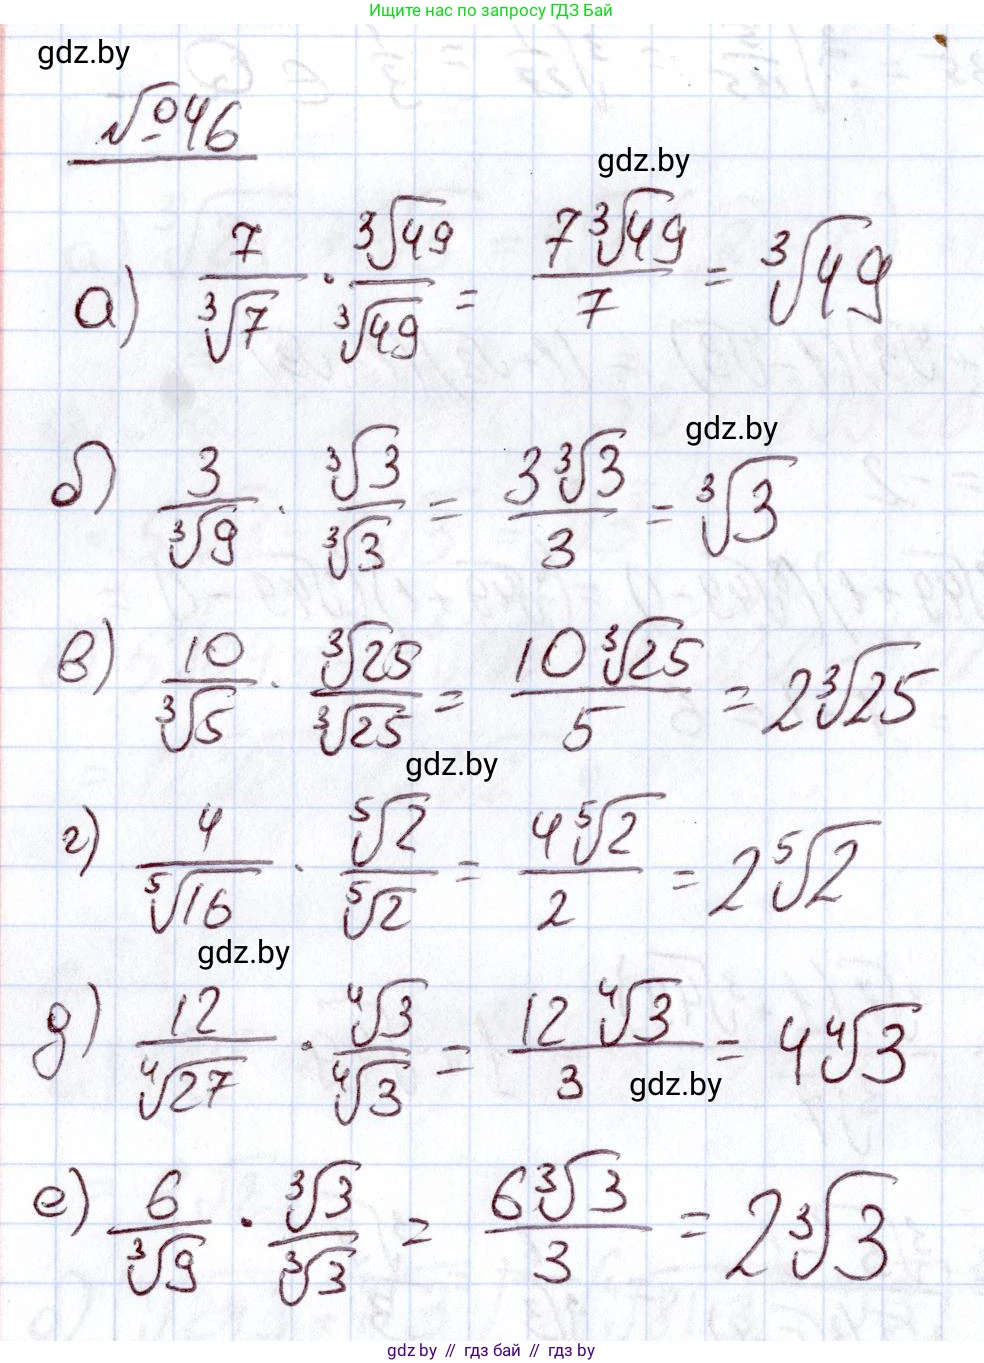 Ищите нас по запросу ГДЗ Бай
gdz.by
№46
gdz.by
а) 7/∛7 · ∛49/∛49 = 7∛49/7 = ∛49
gdz.by
б) 3/∛9 · ∛3/∛3 = 3∛3/3 = ∛3
в) 10/∛5 · ∛25/∛25 = 10∛25/5 = 2∛25
gdz.by
г) 4/⁵√16 · ⁵√2/⁵√2 = 4⁵√2/2 = 2⁵√2
gdz.by
д) 12/∜27 · ∜3/∜3 = 12∜3/3 = 4∜3
gdz.by
е) 6/∛9 · ∛3/∛3 = 6∛3/3 = 2∛3
gdz.by // гдз бай // gdz by